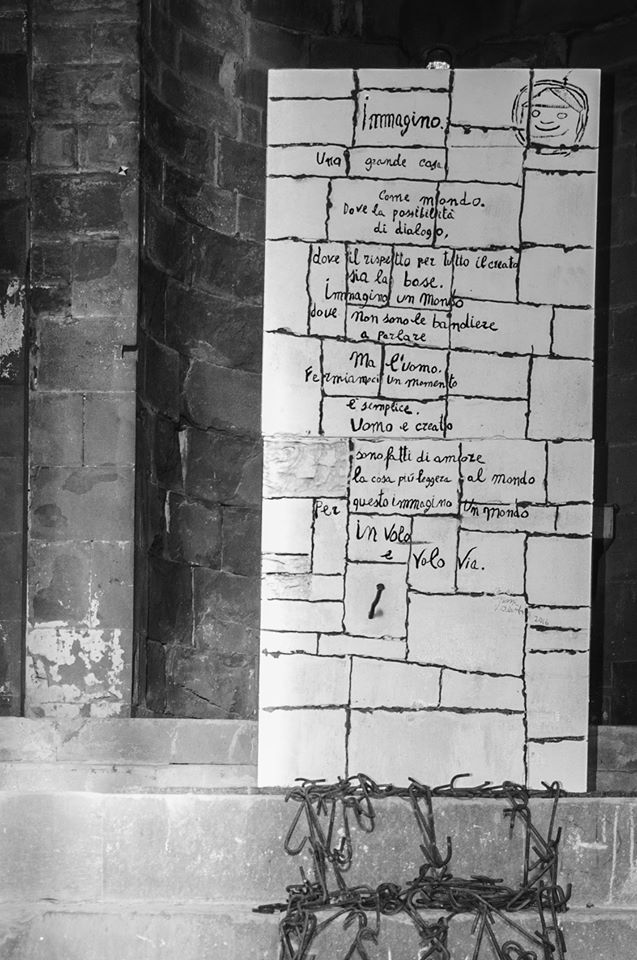 immagino.
Una grande casa.
Come mondo.
Dove la possibilità
di dialogo,
dove il rispetto per tutto il creato
sia la base.
immagino un mondo
dove non sono le bandiere
a parlare
Ma l'uomo.
Fermiamoci un momento
è semplice.
Uomo e creato
sono fatti di amore
la cosa più leggera al mondo
Per questo immagino un Mondo
in Volo
e Volo Via.
2016